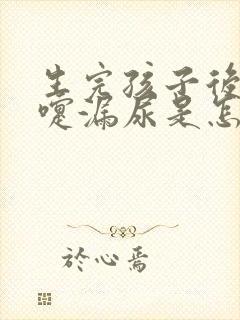 生完孩子後
嚏漏尿是怎
於心焉